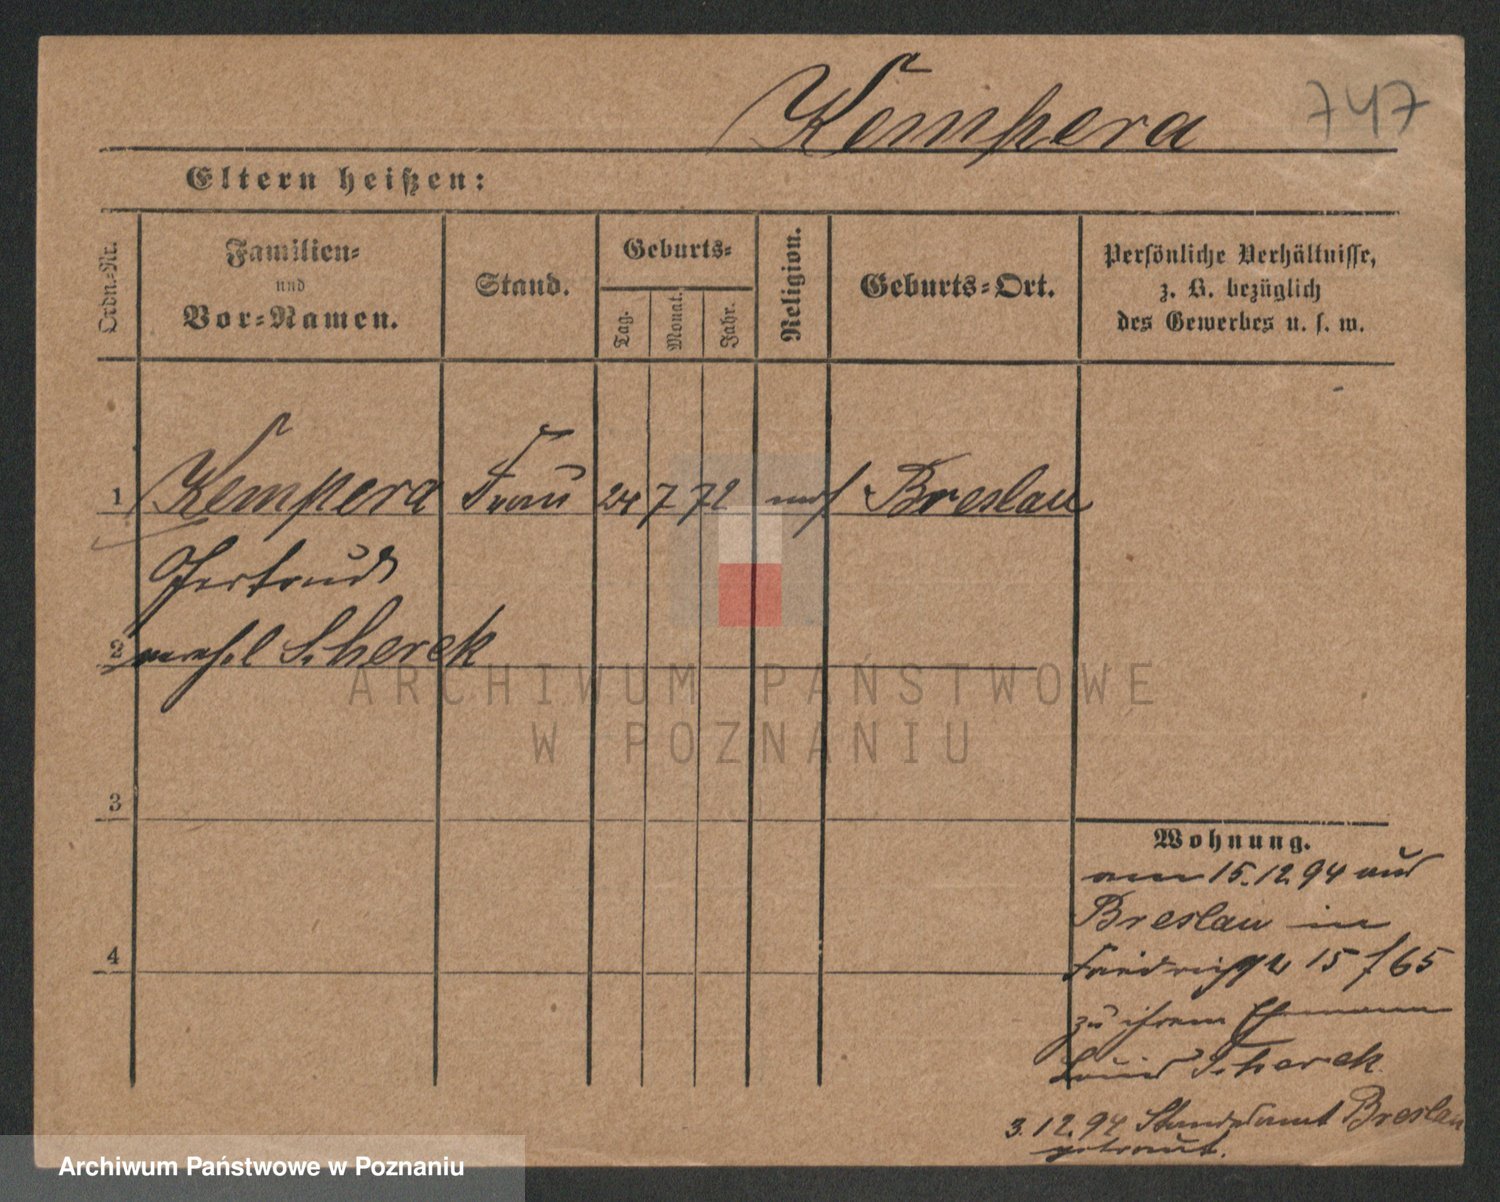 Kempera 747
Eltern heißen:
Ordn.-Nr.
Familien-
und
Vor-Namen.
Stand.
Geburts-
Tag.
Monat.
Jahr.
Religion.
Geburts-Ort.
Persönliche Verhältnisse,
z. B. bezüglich
des Gewerbes u. s. w.
1 Kempera Frau 24 7 72 Breslau
Gertrud
2 verehel Scherek
3
4
Wohnung.
am 15.12.94 aus
Breslau in
15 / 65
zu ihrem Ehemann
Louis Scherek
3.12.94 Standesamt Breslau
getraut.
ARCHIWUM PAŃSTWOWE
W POZNANIU
Archiwum Państwowe w Poznaniu